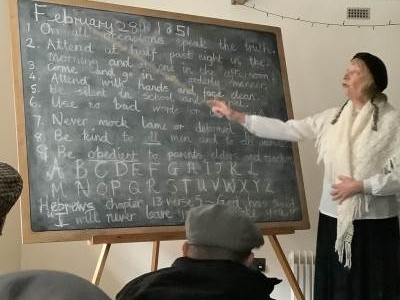 February 28th 1851
1. On all occasions speak the truth.
2. Attend at half past eight in the
morning and at one in the afternoon
3. Come and go in a quiet manner.
4. Attend with hands and face clean.
5. Be silent in school and
6. Use no bad words or
7. Never mock lame or deformed
8. Be kind to all men and to all
9. Be obedient to parents elders and teachers
A B C D E F G H I J K L
M N O P Q R S T U V W X Y Z
Hebrews chapter 13 verse 5 - God has said
"I will never leave you